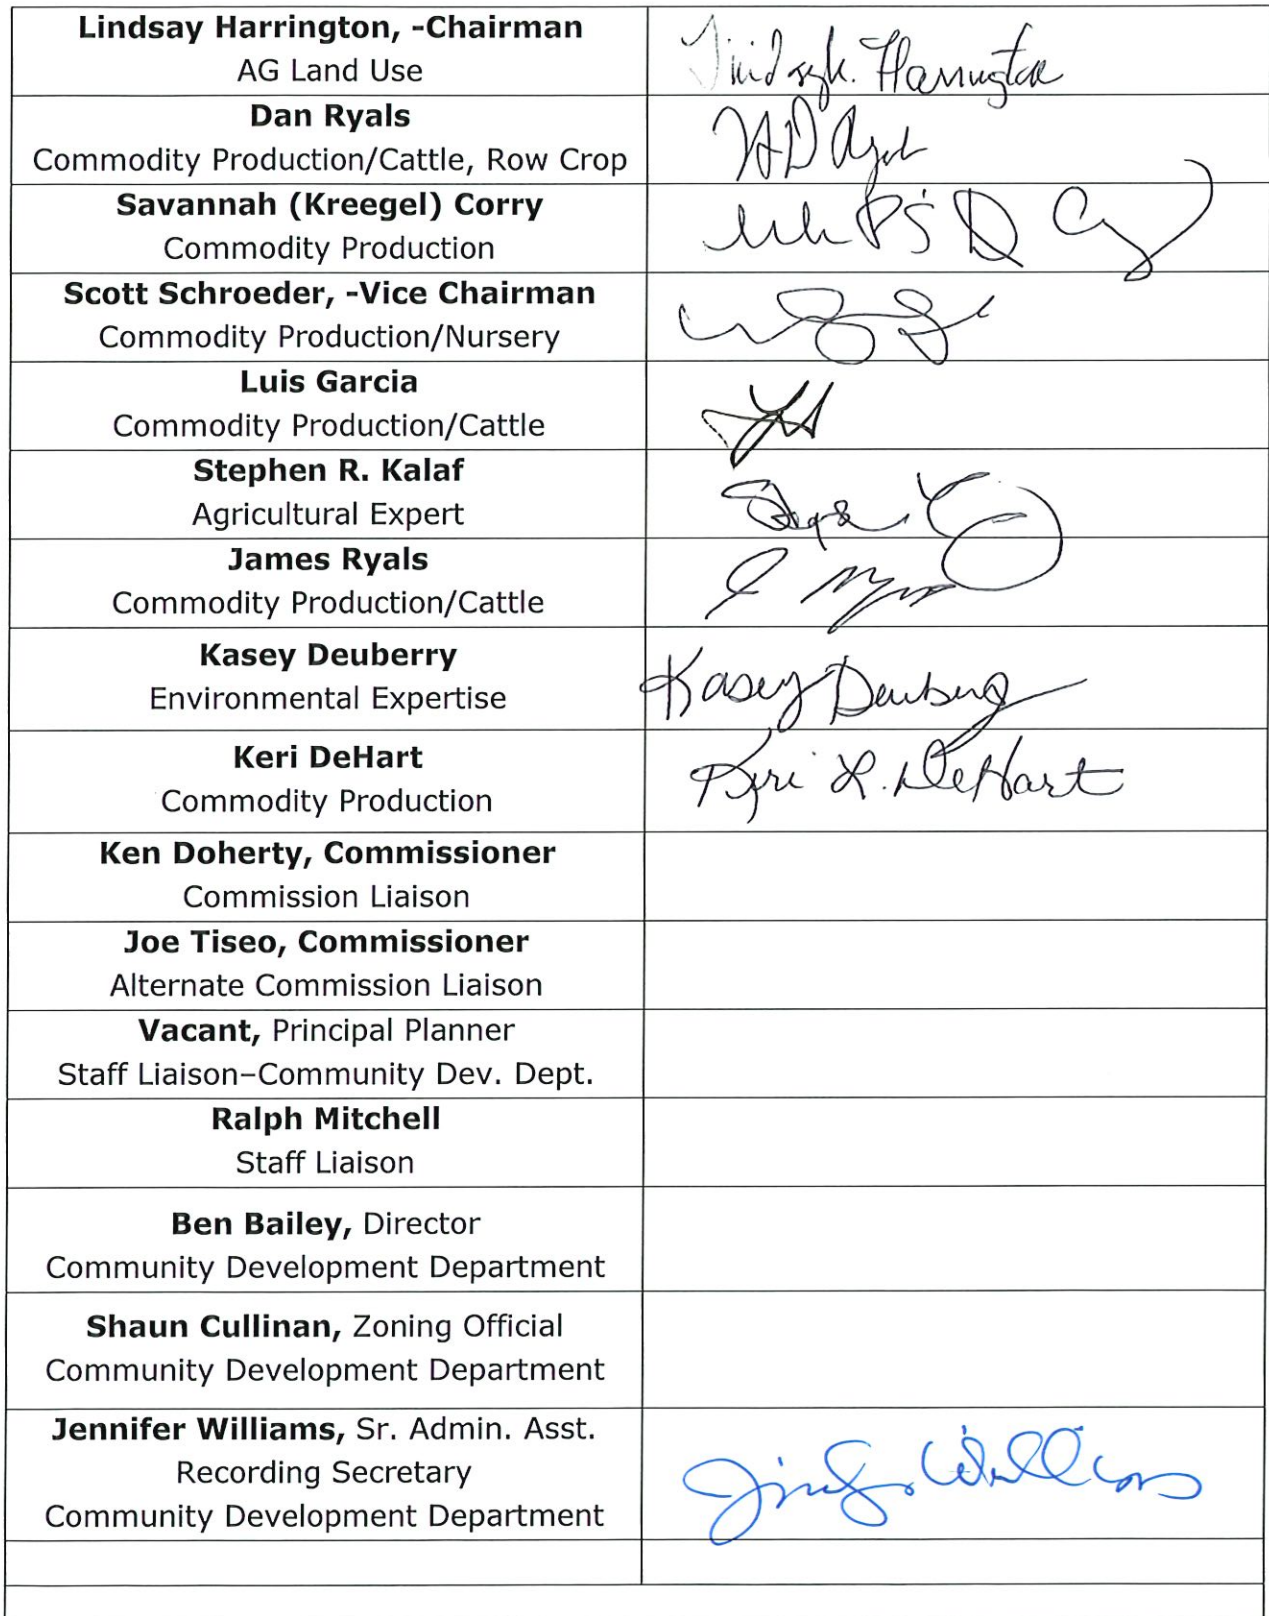 Lindsay Harrington, -Chairman
AG Land Use
Harrington
Dan Ryals
Commodity Production/Cattle, Row Crop
Savannah (Kreegel) Corry
Commodity Production
Scott Schroeder, -Vice Chairman
Commodity Production/Nursery
Luis Garcia
Commodity Production/Cattle
Stephen R. Kalaf
Agricultural Expert
James Ryals
Commodity Production/Cattle
Kasey Deuberry
Environmental Expertise
Kasey Deuberry
Keri DeHart
Commodity Production
Keri L. DeHart
Ken Doherty, Commissioner
Commission Liaison
Joe Tiseo, Commissioner
Alternate Commission Liaison
Vacant, Principal Planner
Staff Liaison–Community Dev. Dept.
Ralph Mitchell
Staff Liaison
Ben Bailey, Director
Community Development Department
Shaun Cullinan, Zoning Official
Community Development Department
Jennifer Williams, Sr. Admin. Asst.
Recording Secretary
Community Development Department
Williams